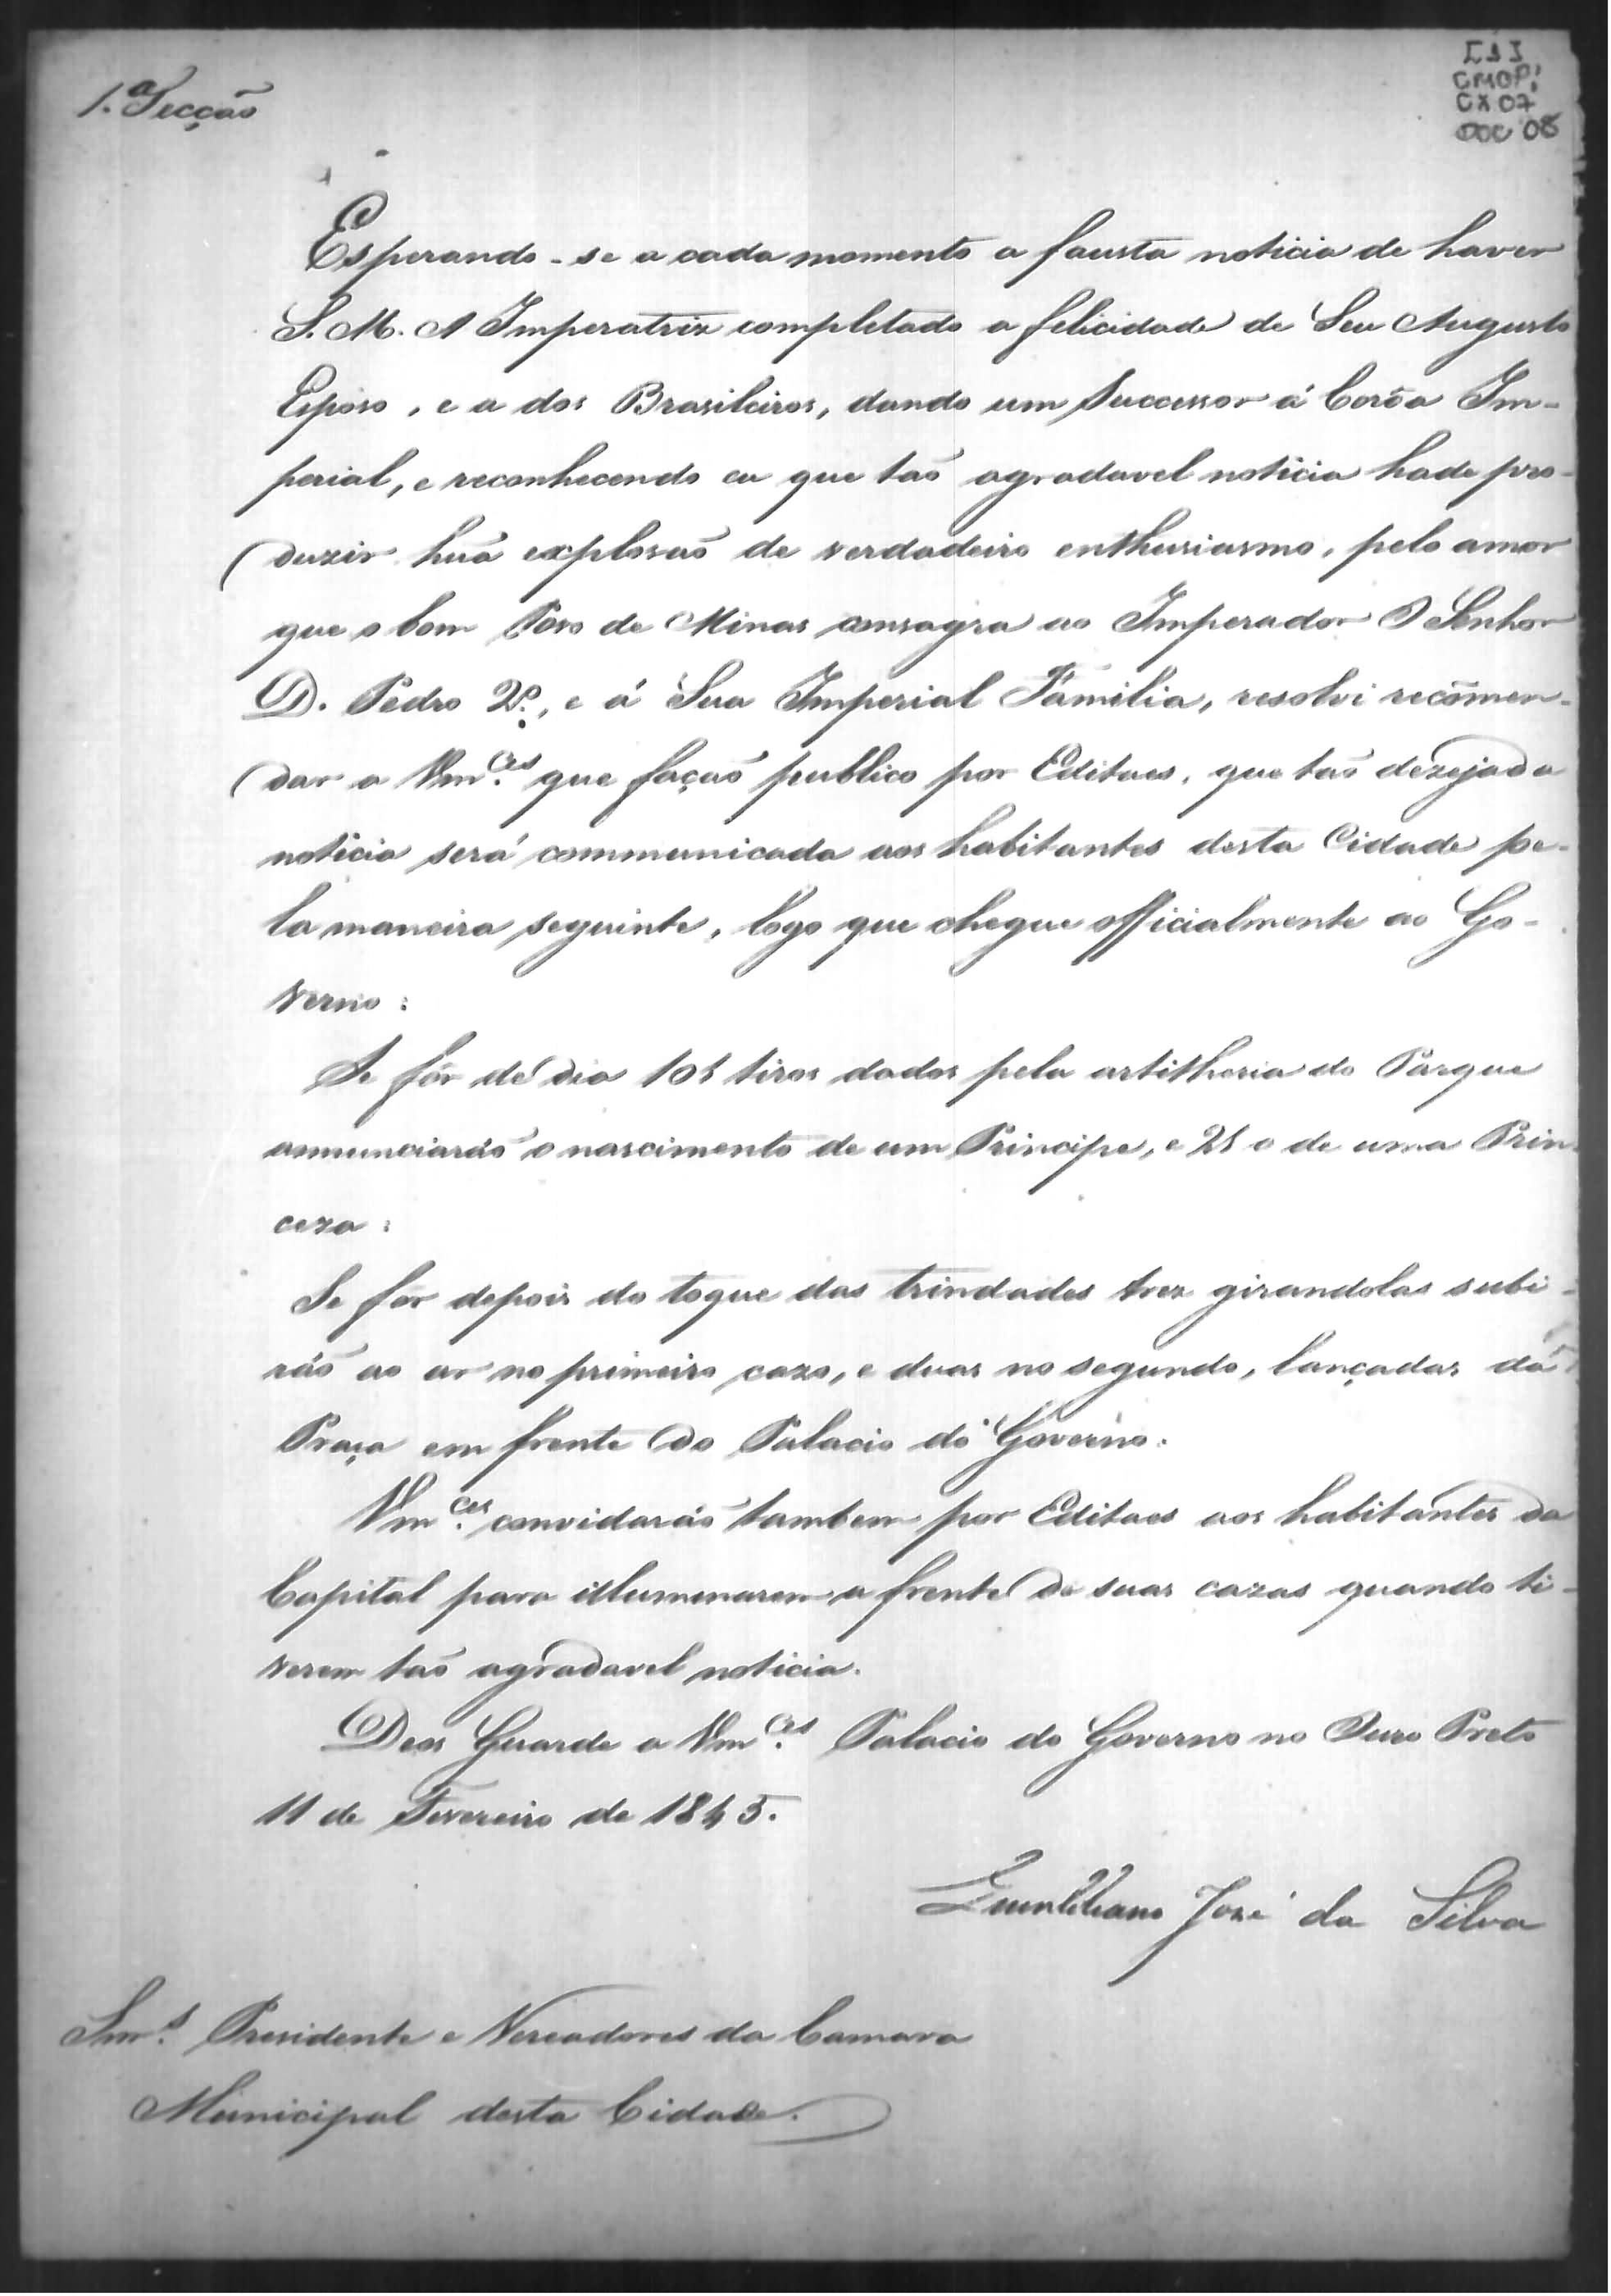 1.ª Secção
[1]
CMOP;
CX 07
DOC 08
Esperando-se a cada momento a fausta noticia de haver
S. M. A Imperatriz completado a felicidade de Seu Augusto
Esposo, e a dos Brasileiros, dando um Successor á Corôa Im-
perial, e reconhecendo eu que taõ agradavel noticia hade pro-
duzir huã explosaõ de verdadeiro enthusiasmo, pelo amor
que o bom Povo de Minas consagra ao Imperador O Senhor
D. Pedro 2º, e á Sua Imperial Familia, resolvi recõmen-
dar a Vm.ces que façaõ publico por Editaes, que taõ dezejada
noticia será communicada aos habitantes desta Cidade pe-
la maneira seguinte, logo que chegue officialmente ao Go-
verno:
Se fôr de dia 101 tiros dados pela artilheria do Parque
annunciaráõ o nascimento de um Principe, e 21 o de uma Prin
ceza:
Se fôr depois do toque das trindades trez girandolas subi-
ráõ ao ar no primeiro cazo, e duas no segundo, lançadas da
Praça em frente do Palacio do Governo.
Vm.ces convidaráõ tambem por Editaes aos habitantes da
Capital para illumenarem a frente de suas cazas quando ti-
verem taõ agradavel noticia.
Deos Guarde a Vm.ces Palacio do Governo no Ouro Preto
11 de Fevereiro de 1845.
Quintiliano José da Silva
Snr.s Presidente e Vereadores da Camara
Municipal desta Cidade.